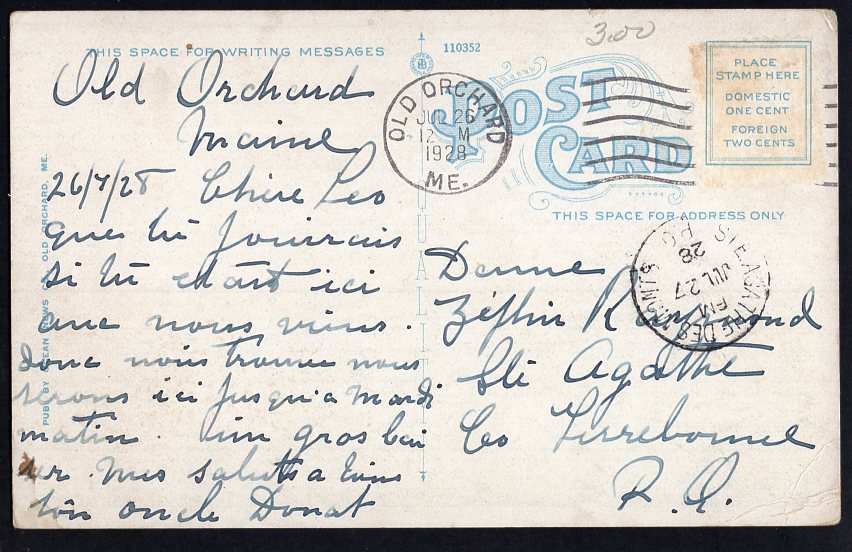 3.00
THIS SPACE FOR WRITING MESSAGES
110352
POST
CARD
PLACE
STAMP HERE
DOMESTIC
ONE CENT
FOREIGN
TWO CENTS
THIS SPACE FOR ADDRESS ONLY
OLD ORCHARD
JUL 26
12 M
1928
ME.
STE. AGATHE DES MONTS
P.Q.
PM
JUL 27
28
Old Orchard
Maine
26/7/28 Chère Leo
que tu jouirais
si tu étais ici
avec nous
Donc nous nous
serons ici jusqu'a mardi
matin. un gros bai
ser. Mes saluts a
ton oncle Donat
Dame
Zéphir Raymond
Ste Agathe
Co Terrebonne
P. Q.
OLD ORCHARD, ME.